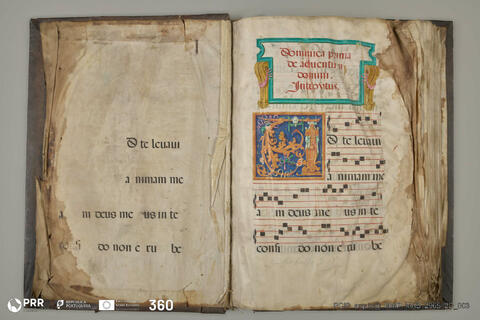 D te levaui
a nimam me
a m deus me us in te
confi do non e ru be
Dominica prima
de aduentu
domini.
Introytus.
D te leuaui
a nimam me
a m deus me us in te
confi do non e ru be
PRR
REPÚBLICA
PORTUGUESA
360